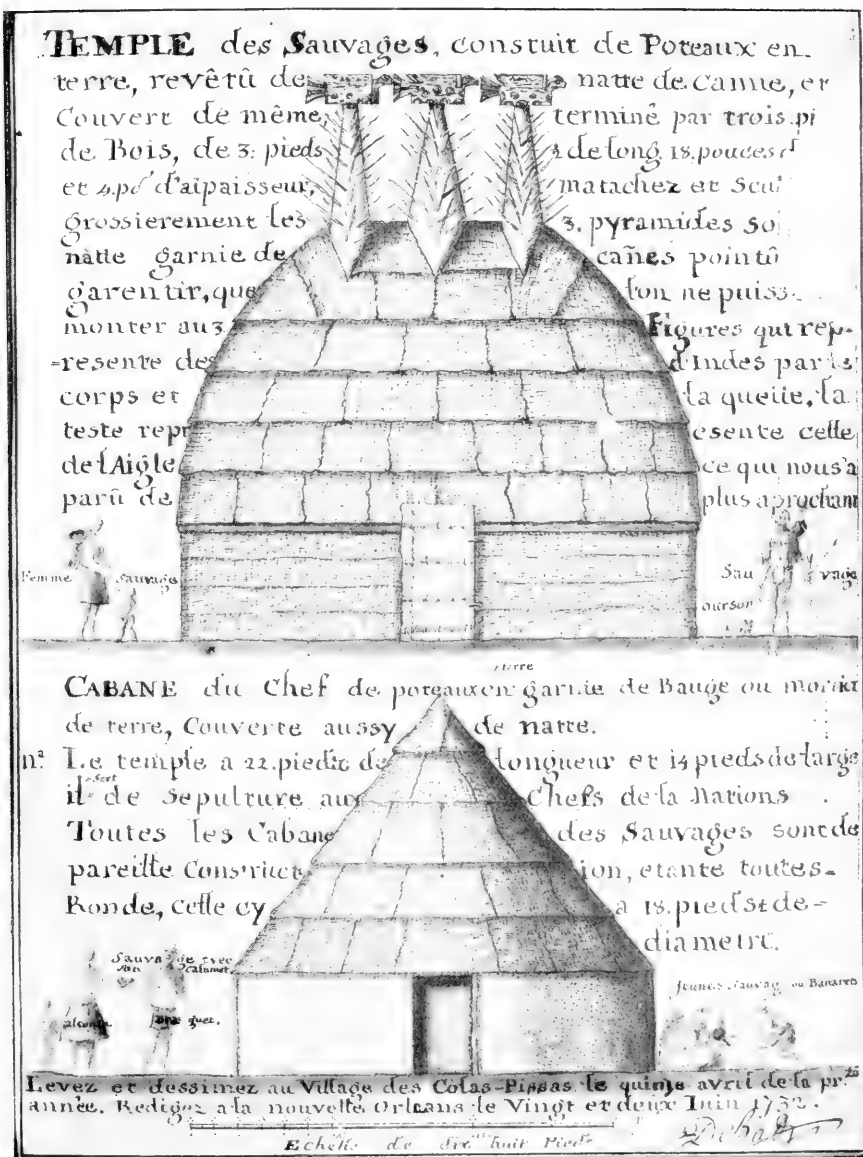 TEMPLE des Sauvages, constuit de Poteaux en
terre, revêtû de natte de Canne, et
Couvert de même, terminé par trois pi
de Bois, de 3: pieds de long 18. pouces
et 4. po d'aipaisseur, matachez et Scul
grossierement les 3. pyramides so
natte garnie de cañes pointû
garentir, que l'on ne puiss
monter au 3 Figures qui rep-
=resente des d'Indes par le
corps et la queüe, la
teste repr esente celle
de l'Aigle ce qui nous a
parû de plus aprochant
Femme Sauvage Sau vage
ourson
CABANE du Chef de poteaux en terre garnie de Bauge ou mortier
de terre, Couverte aussy de natte.
nᵃ Le temple a 22. pieds de longueur et 14 pieds de large
il sert de Sepulture aux Chefs de la Nations.
Toutes les Cabane des Sauvages sont de
pareille Construct ion, etante toutes=
Ronde, celle cy a 18. pieds de=
diametre.
Sauvage avec
son Calumet.
Bra guet.
Jeunes Sauvag ou Banares
Levez et dessinez au Village des Colas-Pissas le quinze avril de la pr
année. Redigez a la nouvelle Orleans le Vingt et deux Iuin 1732.
Echelle de dix huit Pieds